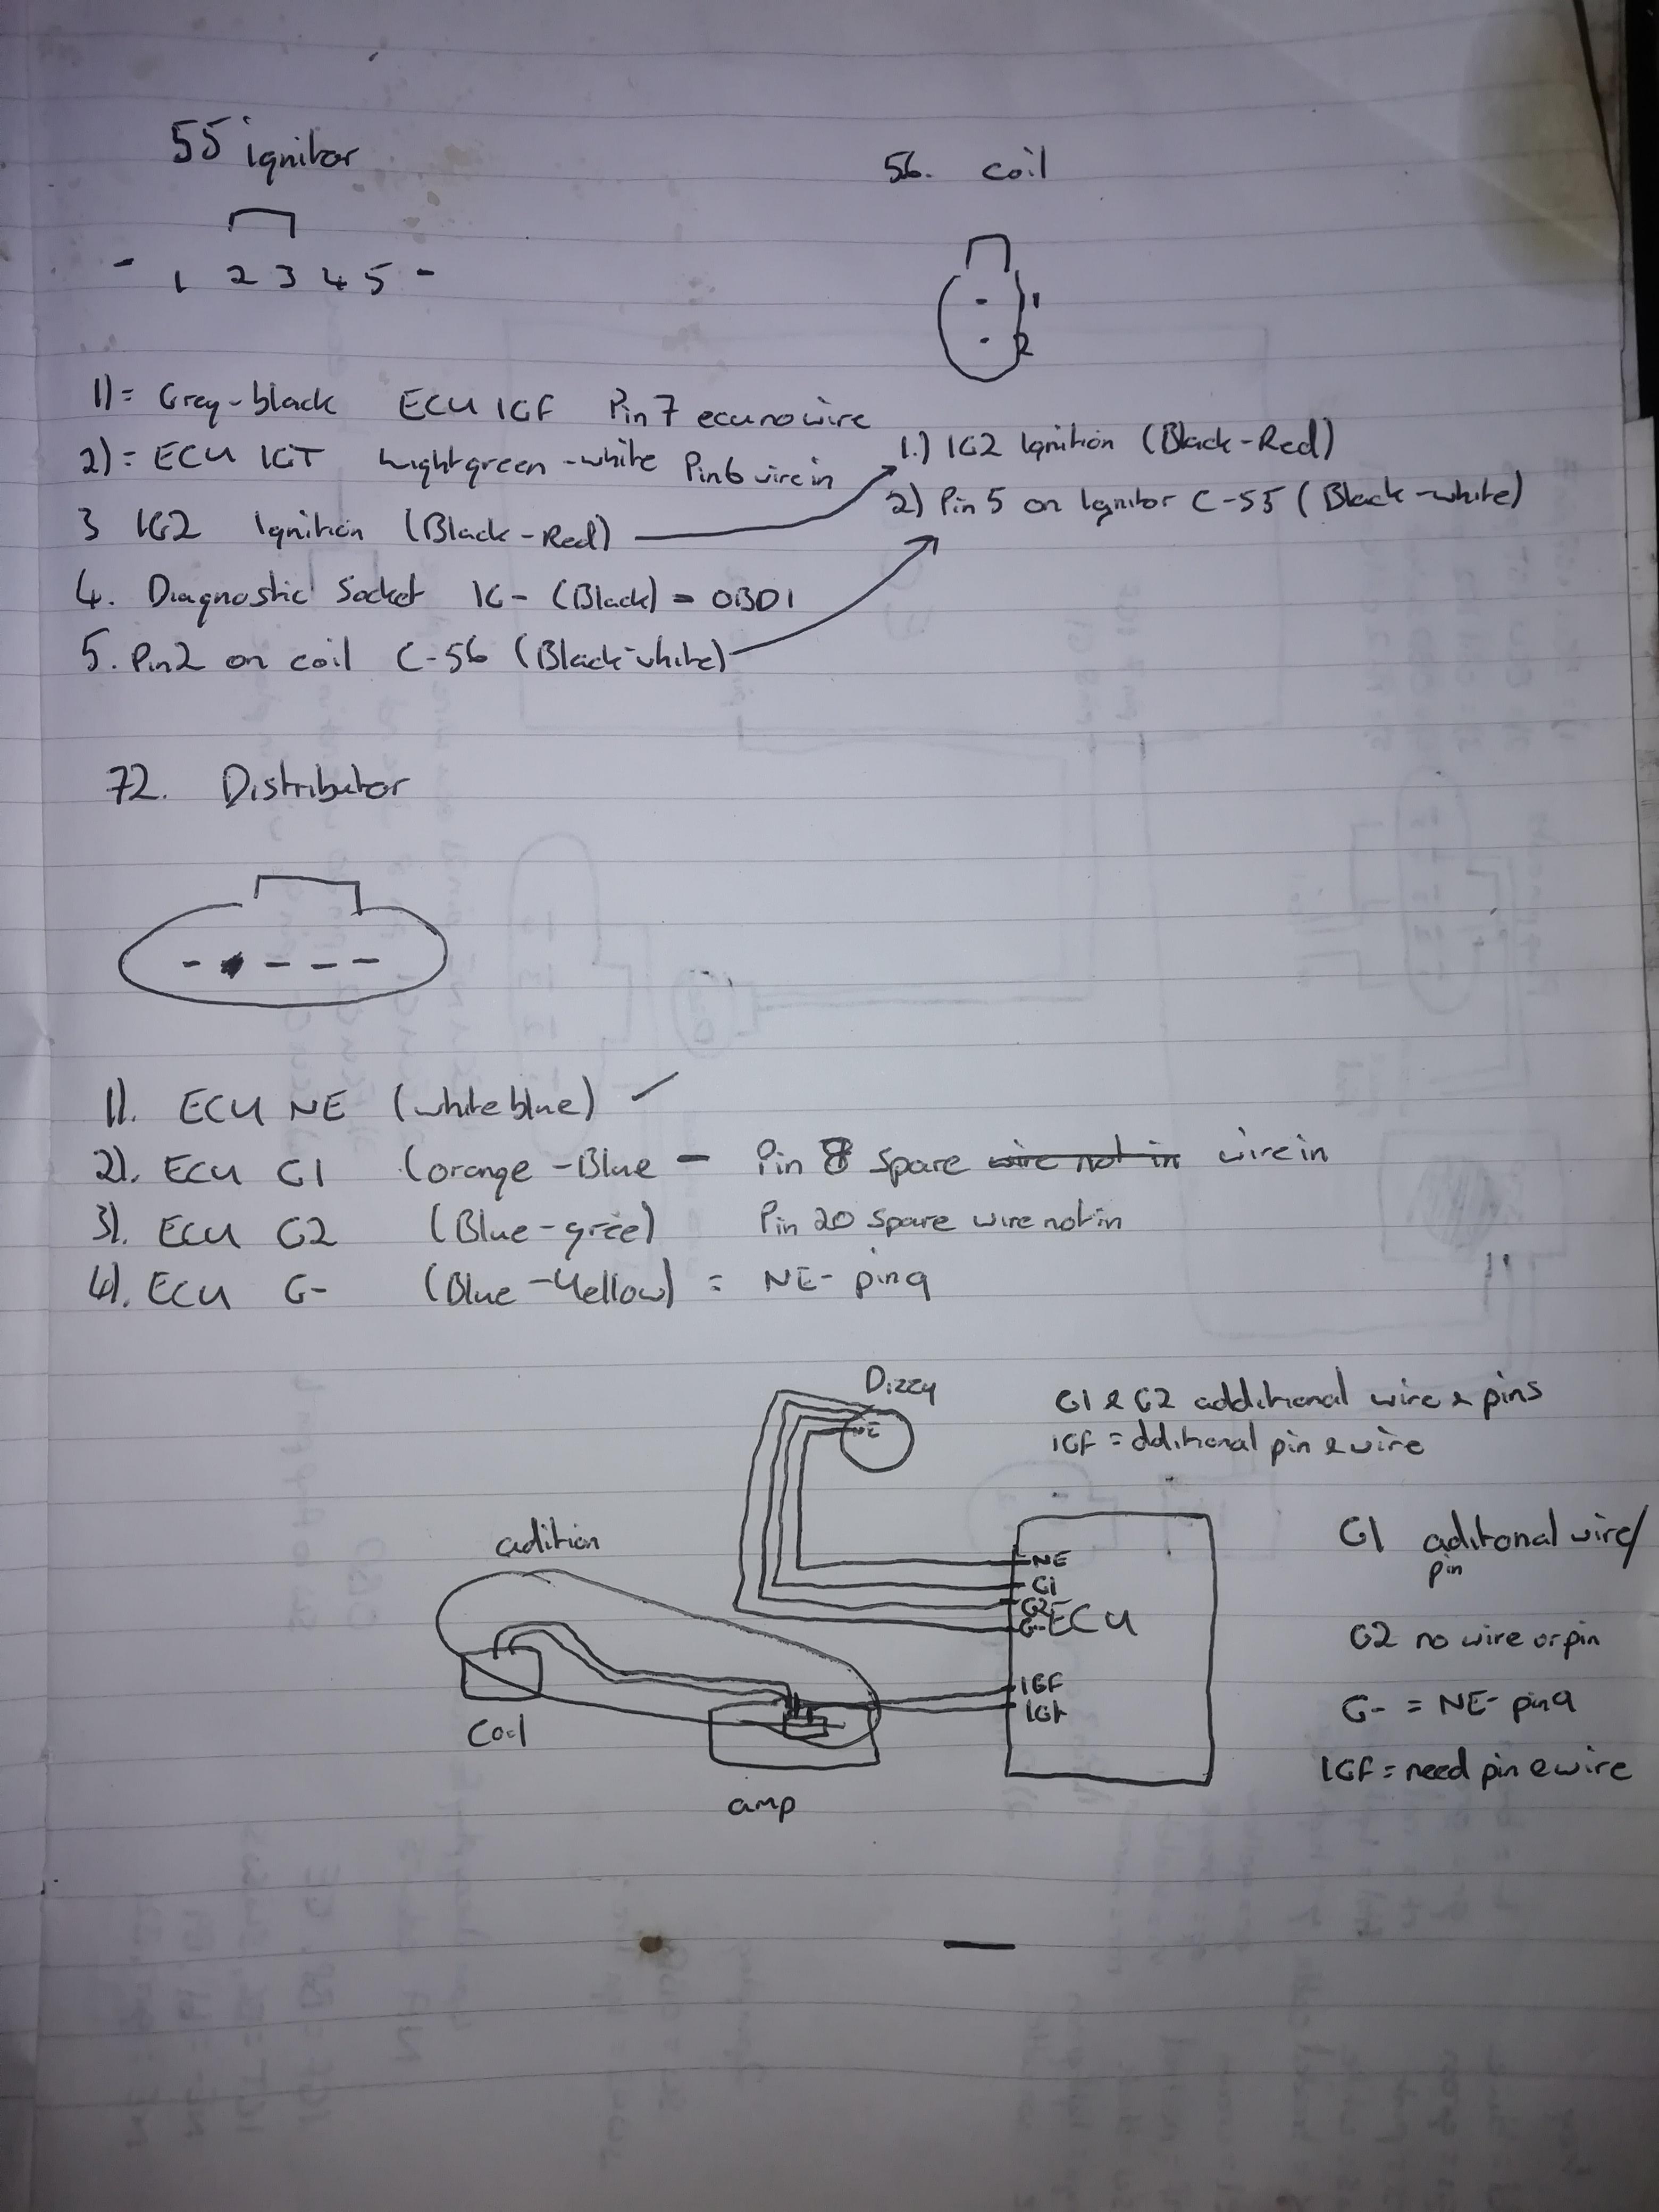 55 ignitor
- 1 2 3 4 5 -
1) = Grey-black ECU IGF Pin 7 ecu no wire
2) = ECU IGT Lightgreen-white Pin 6 wire in
3 IG2 Ignition (Black-Red)
4. Diagnostic Socket IG- (Black) = OBD1
5. Pin 2 on coil C-56 (Black-white)
56. coil
1
2
1.) IG2 Ignition (Black-Red)
2) Pin 5 on Ignitor C-55 (Black-white)
72. Distributor
1). ECU NE (white blue) ✓
2). ECU G1 (orange-Blue - Pin 8 Spare wire not in wire in
3). ECU G2 (Blue-gree) Pin 20 Spare wire not in
4). ECU G- (Blue-Yellow) = NE- pin 9
Dizzy
NE
G1 & G2 additional wire & pins
IGF = dditional pin & wire
adition
NE
G1
G2
G- ECU
IGF
IGt
Coil
amp
G1 aditonal wire/
pin
G2 no wire or pin
G- = NE- pin 9
IGF = need pin & wire